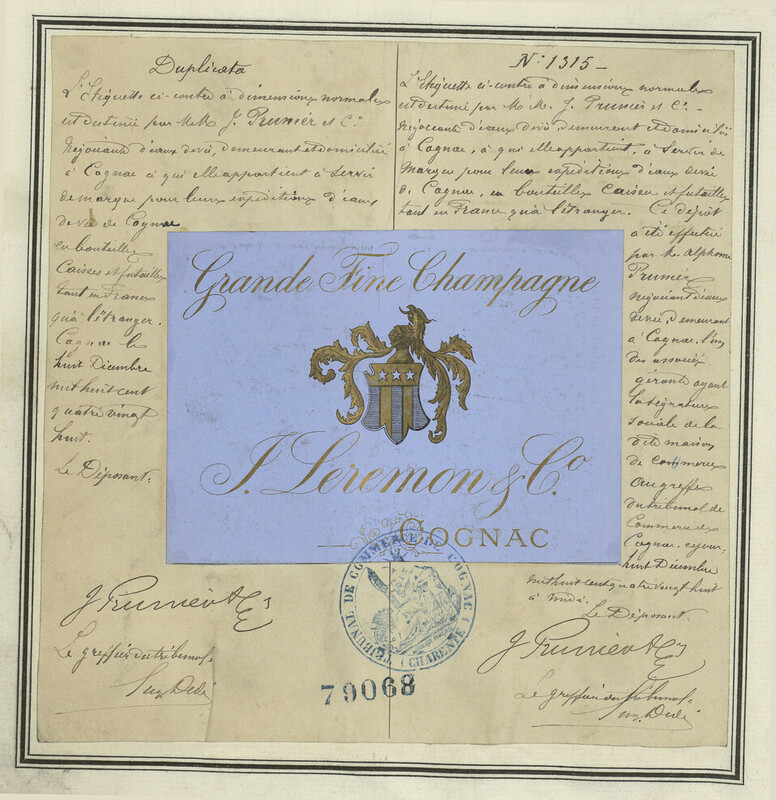 Duplicata
L'Etiquette ci-contre à dimensions normales
est destinée par M.M. J. Prunier et Cie
Négociants d'eaux de vie, demeurant et domiciliés
à Cognac à qui elle appartient à servir
de marque pour leurs expéditions d'eaux
de vie de Cognac
en bouteilles
Caisses et futailles
tant en France
qu'à l'étranger.
Cognac le
huit Décembre
mil huit cent
quatre vingt
huit.
Le Déposant.
J Prunier & Cie
Le greffier du tribunal.
N: 1315 -
L'Etiquette ci-contre à dimensions normales
est destinée par M.M. J. Prunier et Cie -
Négociants d'eaux de vie, demeurant et domiciliés
à Cognac, à qui elle appartient, à servir de
Marque pour leurs expéditions d'eaux de vie
de Cognac, en bouteilles Caisses et futailles
tant en France qu'à l'étranger. Ce dépôt
a été effectué
par M. Alphonse
Prunier
Négociant d'eaux
de vie, demeurant
à Cognac, l'un
des associés
gérants ayant
la signature
sociale de la
dite maison
de Commerce
au greffe
du tribunal de
Commerce de
Cognac, ce jour
huit Décembre
mil huit cent quatre vingt huit
à midi.
Le Déposant.
J Prunier & Cie
Le greffier du tribunal.
Grande Fine Champagne
J. Leremon & Co.
COGNAC
TRIBUNAL DE COMMERCE DE COGNAC
(CHARENTE)
79068